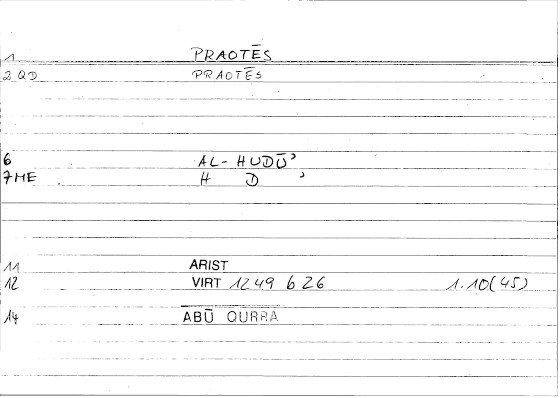 1 PRAOTĒS
2 QD PRAOTĒS
6 AL-HUDŪʾ
7 HE H D ʾ
11 ARIST
12 VIRT 1249 b 26 1.10(45)
14 ABŪ QURRA